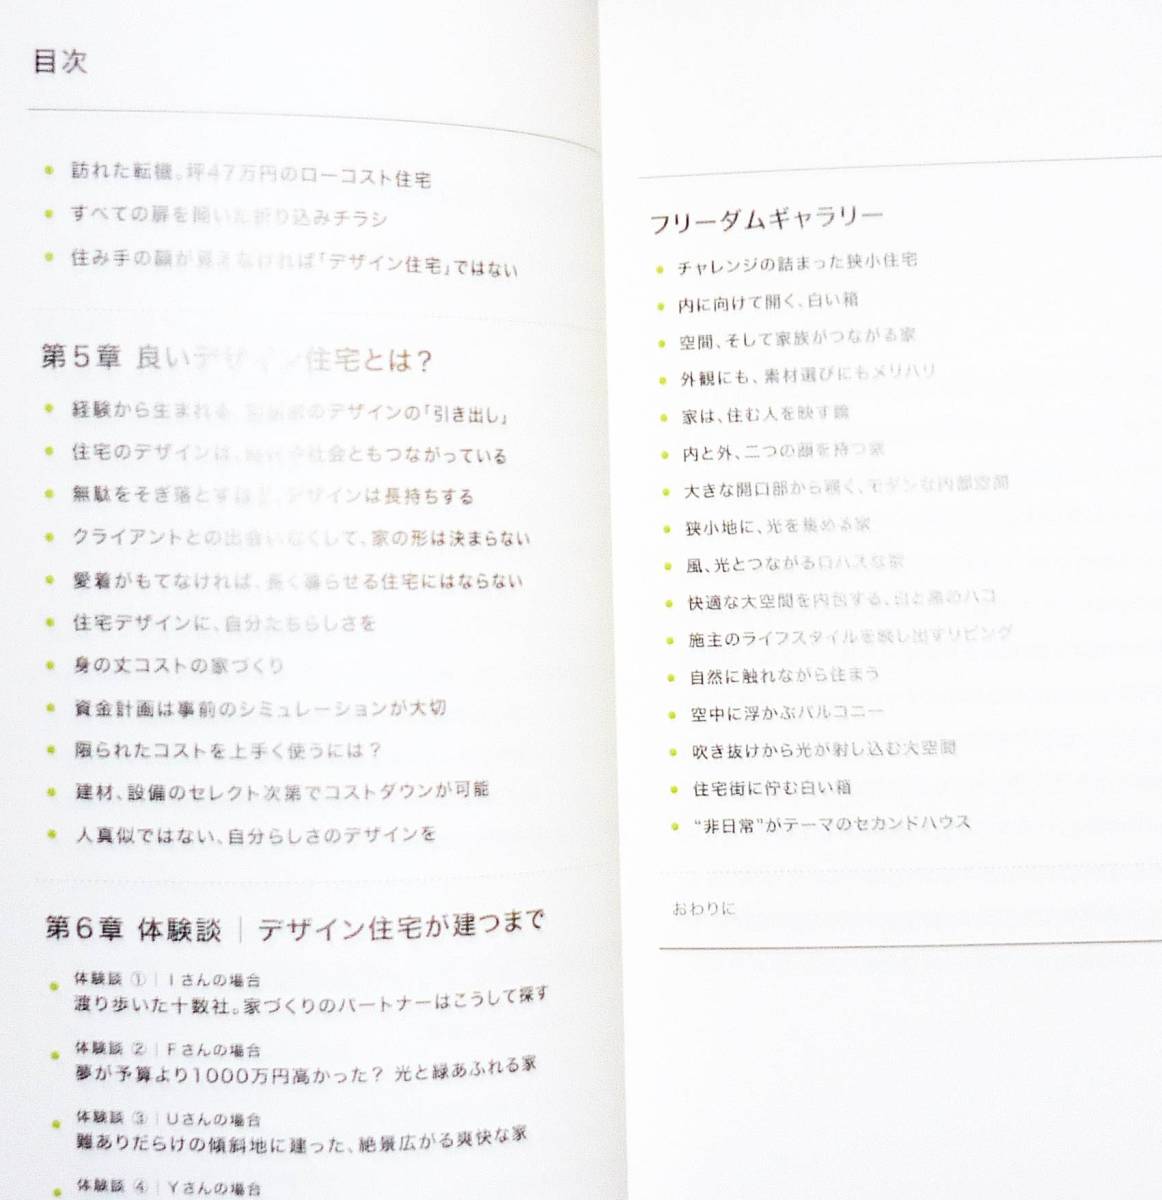 目次
訪れた転機。坪47万円のローコスト住宅
すべての扉を開いた折り込みチラシ
住み手の顔が見えなければ「デザイン住宅」ではない
第5章 良いデザイン住宅とは？
経験から生まれる、建築家のデザインの「引き出し」
住宅のデザインは、時代や社会ともつながっている
無駄をそぎ落とすほど、デザインは長持ちする
クライアントとの出会いなくして、家の形は決まらない
愛着がもてなければ、長く暮らせる住宅にはならない
住宅デザインに、自分たちらしさを
身の丈コストの家づくり
資金計画は事前のシミュレーションが大切
限られたコストを上手く使うには？
建材、設備のセレクト次第でコストダウンが可能
人真似ではない、自分らしさのデザインを
第6章 体験談｜デザイン住宅が建つまで
体験談 ①｜Iさんの場合
渡り歩いた十数社。家づくりのパートナーはこうして探す
体験談 ②｜Fさんの場合
夢が予算より1000万円高かった？ 光と緑あふれる家
体験談 ③｜Uさんの場合
難ありだらけの傾斜地に建った、絶景広がる爽快な家
体験談 ④｜Yさんの場合
フリーダムギャラリー
チャレンジの詰まった狭小住宅
内に向けて開く、白い箱
空間、そして家族がつながる家
外観にも、素材選びにもメリハリ
家は、住む人を映す鏡
内と外、二つの顔を持つ家
大きな開口部から覗く、モダンな内部空間
狭小地に、光を集める家
風、光とつながるロハスな家
快適な大空間を内包する、白と黒のハコ
施主のライフスタイルを映し出すリビング
自然に触れながら住まう
空中に浮かぶバルコニー
吹き抜けから光が射し込む大空間
住宅街に佇む白い箱
“非日常”がテーマのセカンドハウス
おわりに